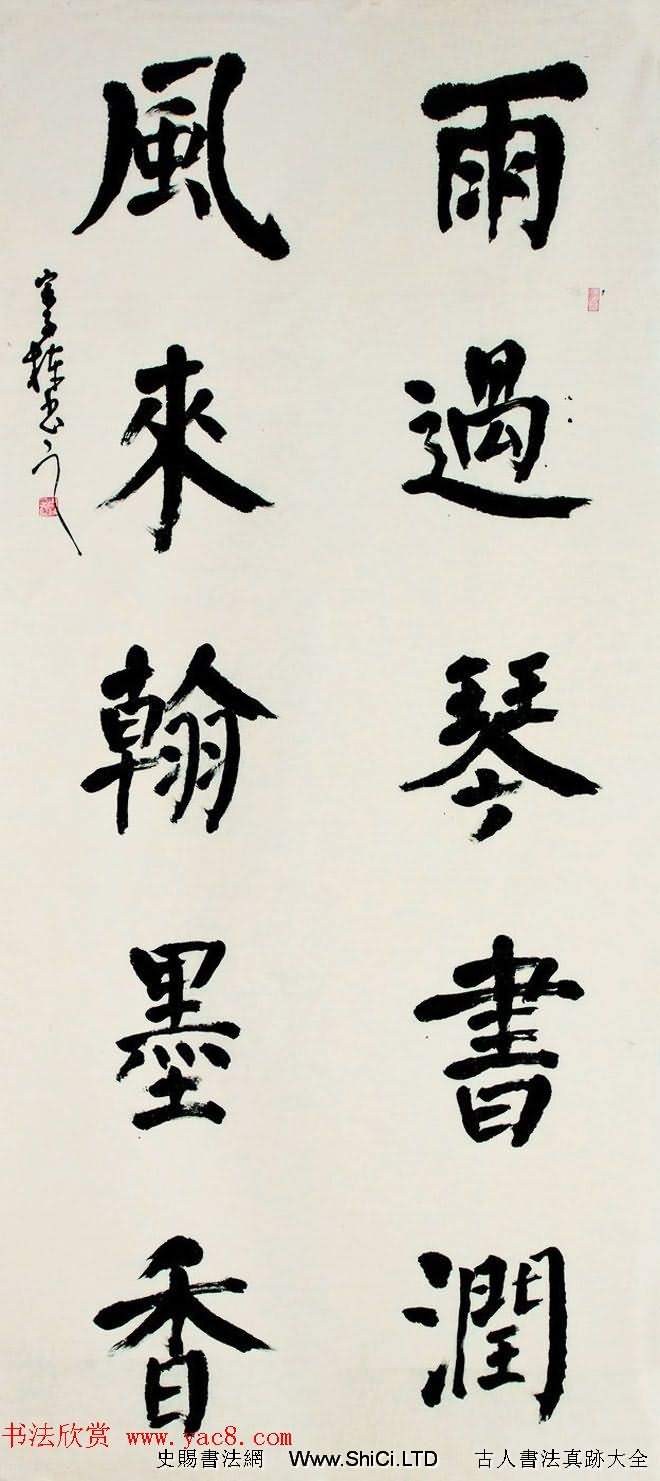 雨過琴書潤
風來翰墨香
书法欣赏 www.yac8.com
史賜書法網 Www.ShiCi.LTD 古人書法真跡大全